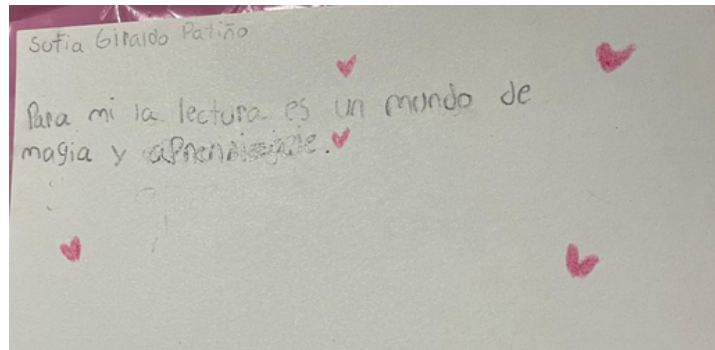 Sofia Giraldo Patiño
Para mi la lectura es un mundo de
magia y aprendizaje.